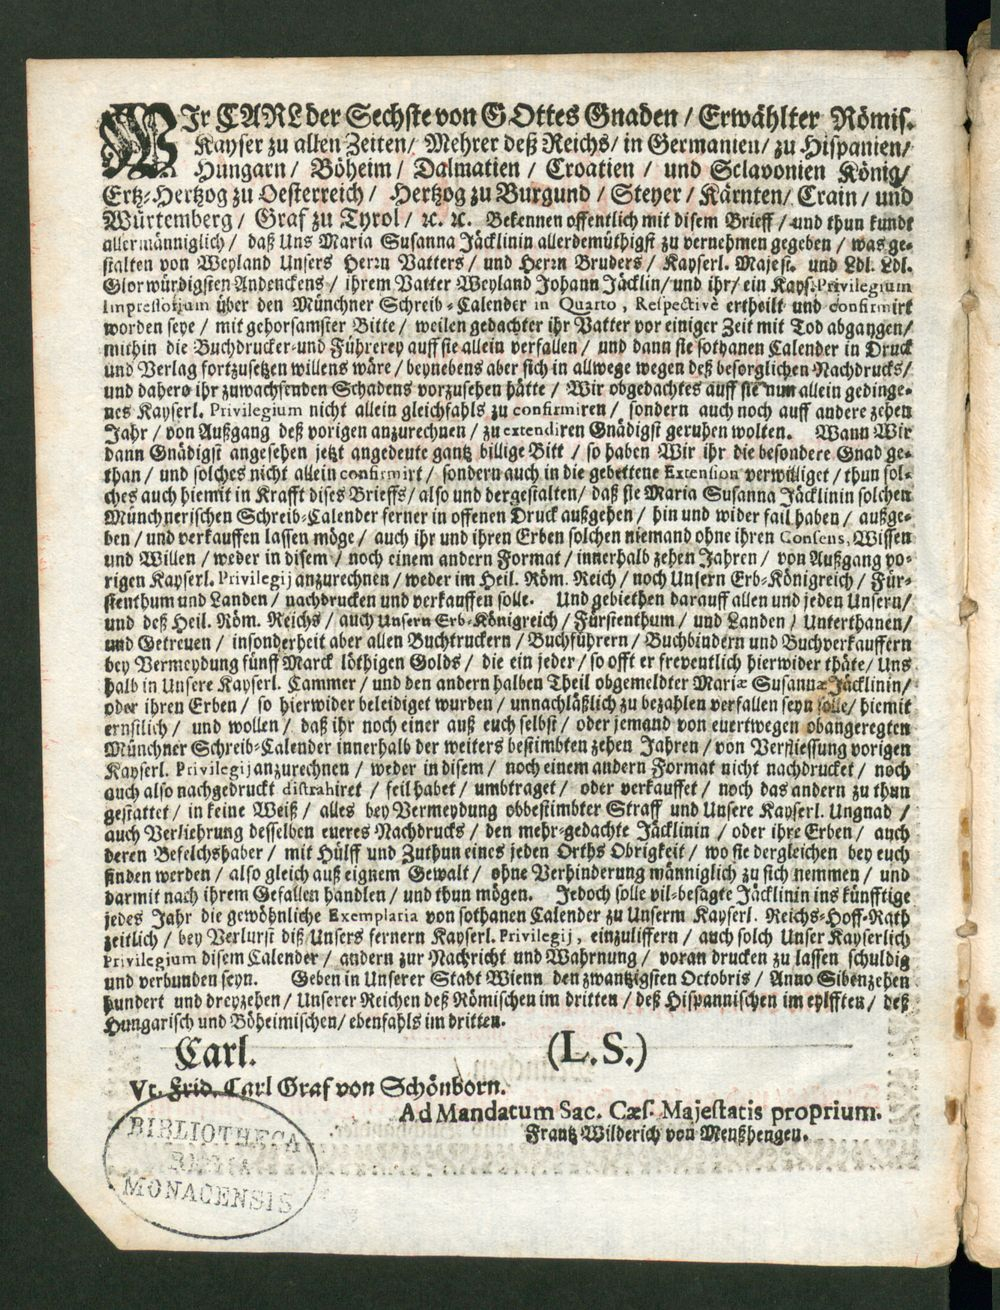 WIr CARL der Sechste von GOttes Gnaden / Erwählter Römis.
Kayser zu allen Zeiten / Mehrer deß Reichs / in Germanien / zu Hispanien /
Hungarn / Böheim / Dalmatien / Croatien / und Sclavonien König /
Ertz-Hertzog zu Oesterreich / Hertzog zu Burgund / Steyer / Kärnten / Crain / und
Würtemberg / Graf zu Tyrol / ꝛc. ꝛc. Bekennen offentlich mit disem Brieff / und thun kundt
allermänniglich / daß Uns Maria Susanna Jäcklinin allerdemüthigst zu vernehmen gegeben / was ge-
stalten von Weyland Unsers Herrn Vatters / und Herrn Bruders / Kayserl. Majest. und Ldl. Ldl.
Glorwürdigsten Andenckens / ihrem Vatter Weyland Johann Jäcklin / und ihr / ein Kays. Privilegium
Impressorium über den Münchner Schreib-Calender in Quarto, Respectivè ertheilt und confirmirt
worden seye / mit gehorsamster Bitte / weilen gedachter ihr Vatter vor einiger Zeit mit Tod abgangen /
mithin die Buchdrucker-und Führerey auff sie allein verfallen / und dann sie sothanen Calender in Druck
und Verlag fortzusetzen willens wäre / beynebens aber sich in allwege wegen deß besorglichen Nachdrucks /
und dahero ihr zuwachsenden Schadens vorzusehen hätte / Wir obgedachtes auff sie nun allein gedinge-
nes Kayserl. Privilegium nicht allein gleichfahls zu confirmiren / sondern auch noch auff andere zehen
Jahr / von Außgang deß vorigen anzurechnen / zu extendiren Gnädigst geruhen wolten. Wann Wir
dann Gnädigst angesehen jetzt angedeute gantz billige Bitt / so haben Wir ihr die besondere Gnad ge-
than / und solches nicht allein confirmirt / sondern auch in die gebettene Extension verwilliget / thun sol-
ches auch hiemit in Krafft dises Brieffs / also und dergestalten / daß sie Maria Susanna Jäcklinin solchen
Münchnerischen Schreib-Calender ferner in offenen Druck außgehen / hin und wider fail haben / außge-
ben / und verkauffen lassen möge / auch ihr und ihren Erben solchen niemand ohne ihren Consens, Wissen
und Willen / weder in disem / noch einem andern Format / innerhalb zehen Jahren / von Außgang vo-
rigen Kayserl. Privilegij anzurechnen / weder im Heil. Röm. Reich / noch Unsern Erb-Königreich / Für-
stenthum und Landen / nachdrucken und verkauffen solle. Und gebiethen darauff allen und jeden Unsern /
und deß Heil. Röm. Reichs / auch Unsern Erb-Königreich / Fürstenthum / und Landen / Unterthanen /
und Getreuen / insonderheit aber allen Buchtruckern / Buchführern / Buchbindern und Buchverkauffern
bey Vermeydung fünff Marck löthigen Golds / die ein jeder / so offt er freventlich hierwider thäte / Uns
halb in Unsere Kayserl. Cammer / und den andern halben Theil obgemeldter Mariæ Susannæ Jäcklinin /
oder ihren Erben / so hierwider beleidiget wurden / unnachläßlich zu bezahlen verfallen seyn solle / hiemit
ernstlich / und wollen / daß ihr noch einer auß euch selbst / oder jemand von euertwegen obangeregten
Münchner Schreib-Calender innerhalb der weiters bestimbten zehen Jahren / von Verfliessung vorigen
Kayserl. Privilegij anzurechnen / weder in disem / noch einem andern Format nicht nachdrucket / noch
auch also nachgedruckt distrahiret / feil habet / umbtraget / oder verkauffet / noch das andern zu thun
gestattet / in keine Weiß / alles bey Vermeydung obbestimbter Straff und Unsere Kayserl. Ungnad /
auch Verliehrung desselben eueres Nachdrucks / den mehr-gedachte Jäcklinin / oder ihre Erben / auch
deren Befelchshaber / mit Hülff und Zuthun eines jeden Orths Obrigkeit / wo sie dergleichen bey euch
finden werden / also gleich auß eignem Gewalt / ohne Verhinderung männiglich zu sich nemmen / und
darmit nach ihrem Gefallen handlen / und thun mögen. Jedoch solle vil-besagte Jäcklinin ins künfftige
jedes Jahr die gewöhnliche Exemplaria von sothanen Calender zu Unserm Kayserl. Reichs-Hoff-Rath
zeitlich / bey Verlurst diß Unsers fernern Kayserl. Privilegij, einzuliffern / auch solch Unser Kayserlich
Privilegium disem Calender / andern zur Nachricht und Wahrnung / voran drucken zu lassen schuldig
und verbunden seyn. Geben in Unserer Stadt Wienn den zwantzigsten Octobris / Anno Sibenzehen
hundert und dreyzehen / Unserer Reichen deß Römischen im dritten / deß Hispannischen im eylfften / deß
Hungarisch und Böheimischen / ebenfahls im dritten.
Carl. (L.S.)
Vt. Frid. Carl Graf von Schönborn.
Ad Mandatum Sac. Cæs. Majestatis proprium.
Frantz Wilderich von Menßhengen.
BIBLIOTHECA
REGIA
MONACENSIS